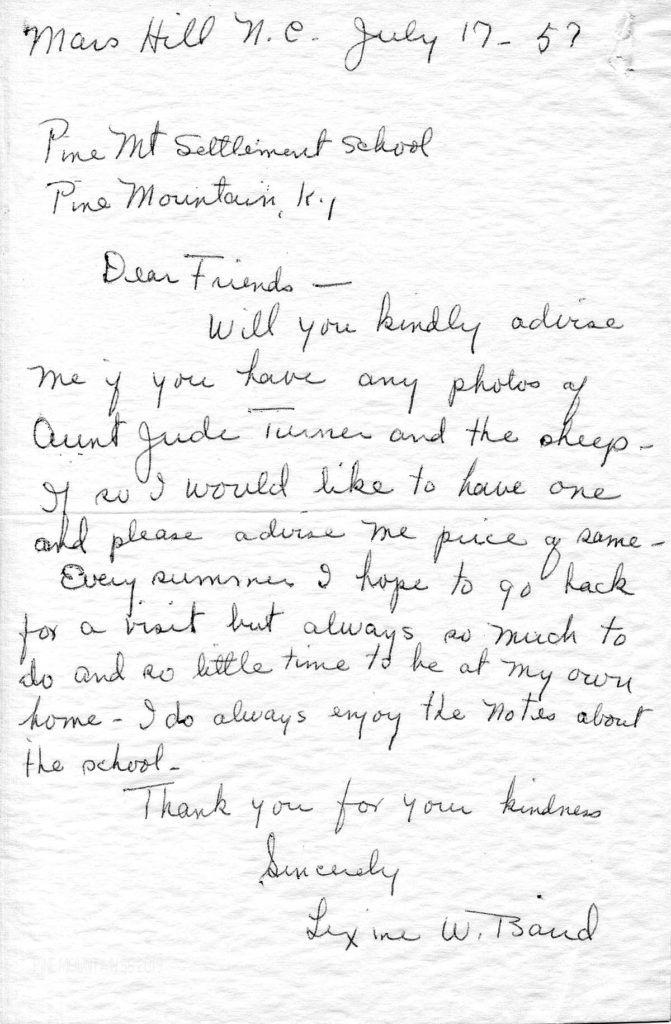 Mars Hill N.C. July 17 - 57
Pine Mt Settlement School
Pine Mountain, Ky
Dear Friends —
Will you kindly advise
me if you have any photos of
Aunt Jude Turner and the sheep -
If so I would like to have one
and please advise me price of same -
Every summer I hope to go back
for a visit but always so much to
do and so little time to be at my own
home - I do always enjoy the Notes about
the school -
Thank you for your kindness
Sincerely
Lexine W. Baird